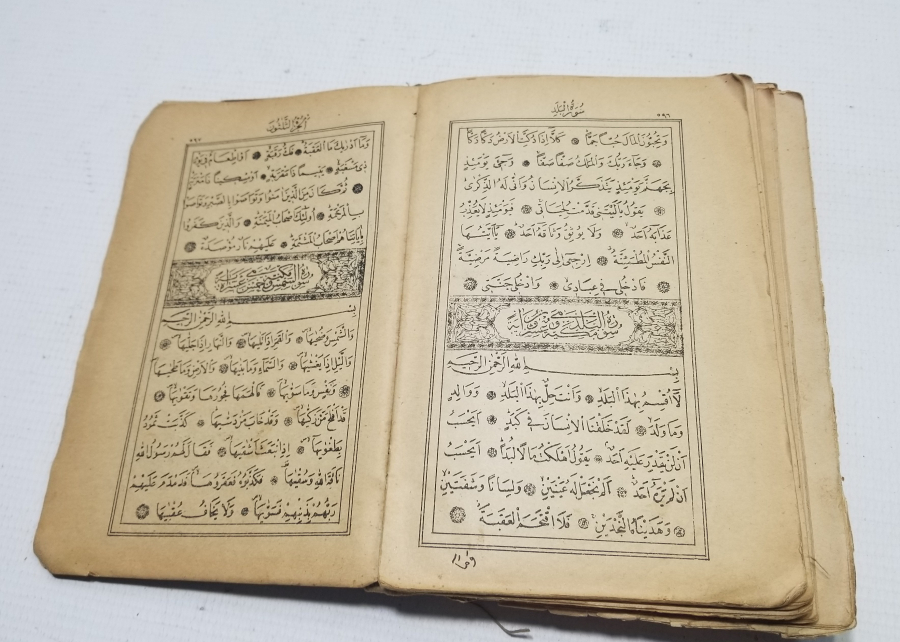 سورة البلد
٥٩٦
وتحبون المال حبا جما ۞ كلا اذا دكت الارض دكا دكا
۞ وجاء ربك والملك صفا صفا ۞ وجئ يومئذ
بجهنم يومئذ يتذكر الانسان وانى له الذكرى
۞ يقول يا ليتني قدمت لحياتي ۞ فيومئذ لا يعذب
عذابه احد ۞ ولا يوثق وثاقه احد ۞ يا ايتها
النفس المطمئنة ۞ ارجعي الى ربك راضية مرضية
۞ فادخلي في عبادي ۞ وادخلي جنتي ۞
سورة البلد مكية وهي عشرون آية
بسم الله الرحمن الرحيم
لا اقسم بهذا البلد ۞ وانت حل بهذا البلد ۞ ووالد
وما ولد ۞ لقد خلقنا الانسان في كبد ۞ ايحسب
ان لن يقدر عليه احد ۞ يقول اهلكت مالا لبدا ۞ ايحسب
ان لم يره احد ۞ الم نجعل له عينين ۞ ولسانا وشفتين
۞ وهديناه النجدين ۞ فلا اقتحم العقبة ۞
وما
الجزء الثلثون
٥٩٧
وما ادريك ما العقبة ۞ فك رقبة ۞ او اطعام في يوم
ذي مسغبة ۞ يتيما ذا مقربة ۞ او مسكينا ذا متربة
۞ ثم كان من الذين امنوا وتواصوا بالصبر وتواصوا
بالمرحمة ۞ اولئك اصحاب الميمنة ۞ والذين كفروا
باياتنا هم اصحاب المشئمة ۞ عليهم نار مؤصدة ۞
سورة الشمس مكية وهي خمس عشرة آية
بسم الله الرحمن الرحيم
والشمس وضحيها ۞ والقمر اذا تليها ۞ والنهار اذا جليها ۞
والليل اذا يغشيها ۞ والسماء وما بنيها ۞ والارض وما طحيها
۞ ونفس وما سويها ۞ فالهمها فجورها وتقويها ۞
قد افلح من زكيها ۞ وقد خاب من دسيها ۞ كذبت ثمود
بطغويها ۞ اذ انبعث اشقيها ۞ فقال لهم رسول الله
ناقة الله وسقيها ۞ فكذبوه فعقروها فدمدم عليهم
ربهم بذنبهم فسويها ۞ ولا يخاف عقبيها ۞